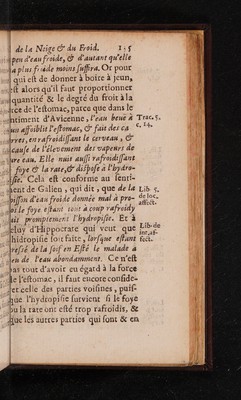 de la Neige & du Froid. 135
peu d'eau froide, & d'autant qu'elle
a plus froide moins suffira. Or pour
qui est de donner à boire à jeun,
st alors qu'il faut proportionner
quantité & le degré du froit à la
rce de l'estomac, parce que dans le
ntiment d'Avicenne, l'eau beuë à
un affoiblit l'estomac, & fait des ca
Trac. 5.
c. 24.
rres, en rafroidissant le cerveau, &
cause de l'élevement des vapeurs de
tte eau. Elle nuit aussi rafroidissant
foye & la rate, & dispose à l'hydro-
sie. Cela est conforme au senti-
ent de Galien, qui dit, que de la
oisson d'eau froide donnée mal à pro-
Lib. 5.
de loc.
affect.
os le foye estant tout à coup rafroidy
it promptement l'hydropisie. Et à
eluy d'Hippocrate qui veut que
hidropisie soit faite, lorsque estant
Lib. de
int. af-
fect.
ressé de la soif en Esté le malade a
eu de l'eau abondamment. Ce n'est
pas tout d'avoir eu égard à la force
e l'estomac, il faut encore conside-
er celle des parties voisines, puis-
que l'hydropisie survient si le foye
ou la rate ont esté trop rafroidis, &
que les autres parties qui sont & en